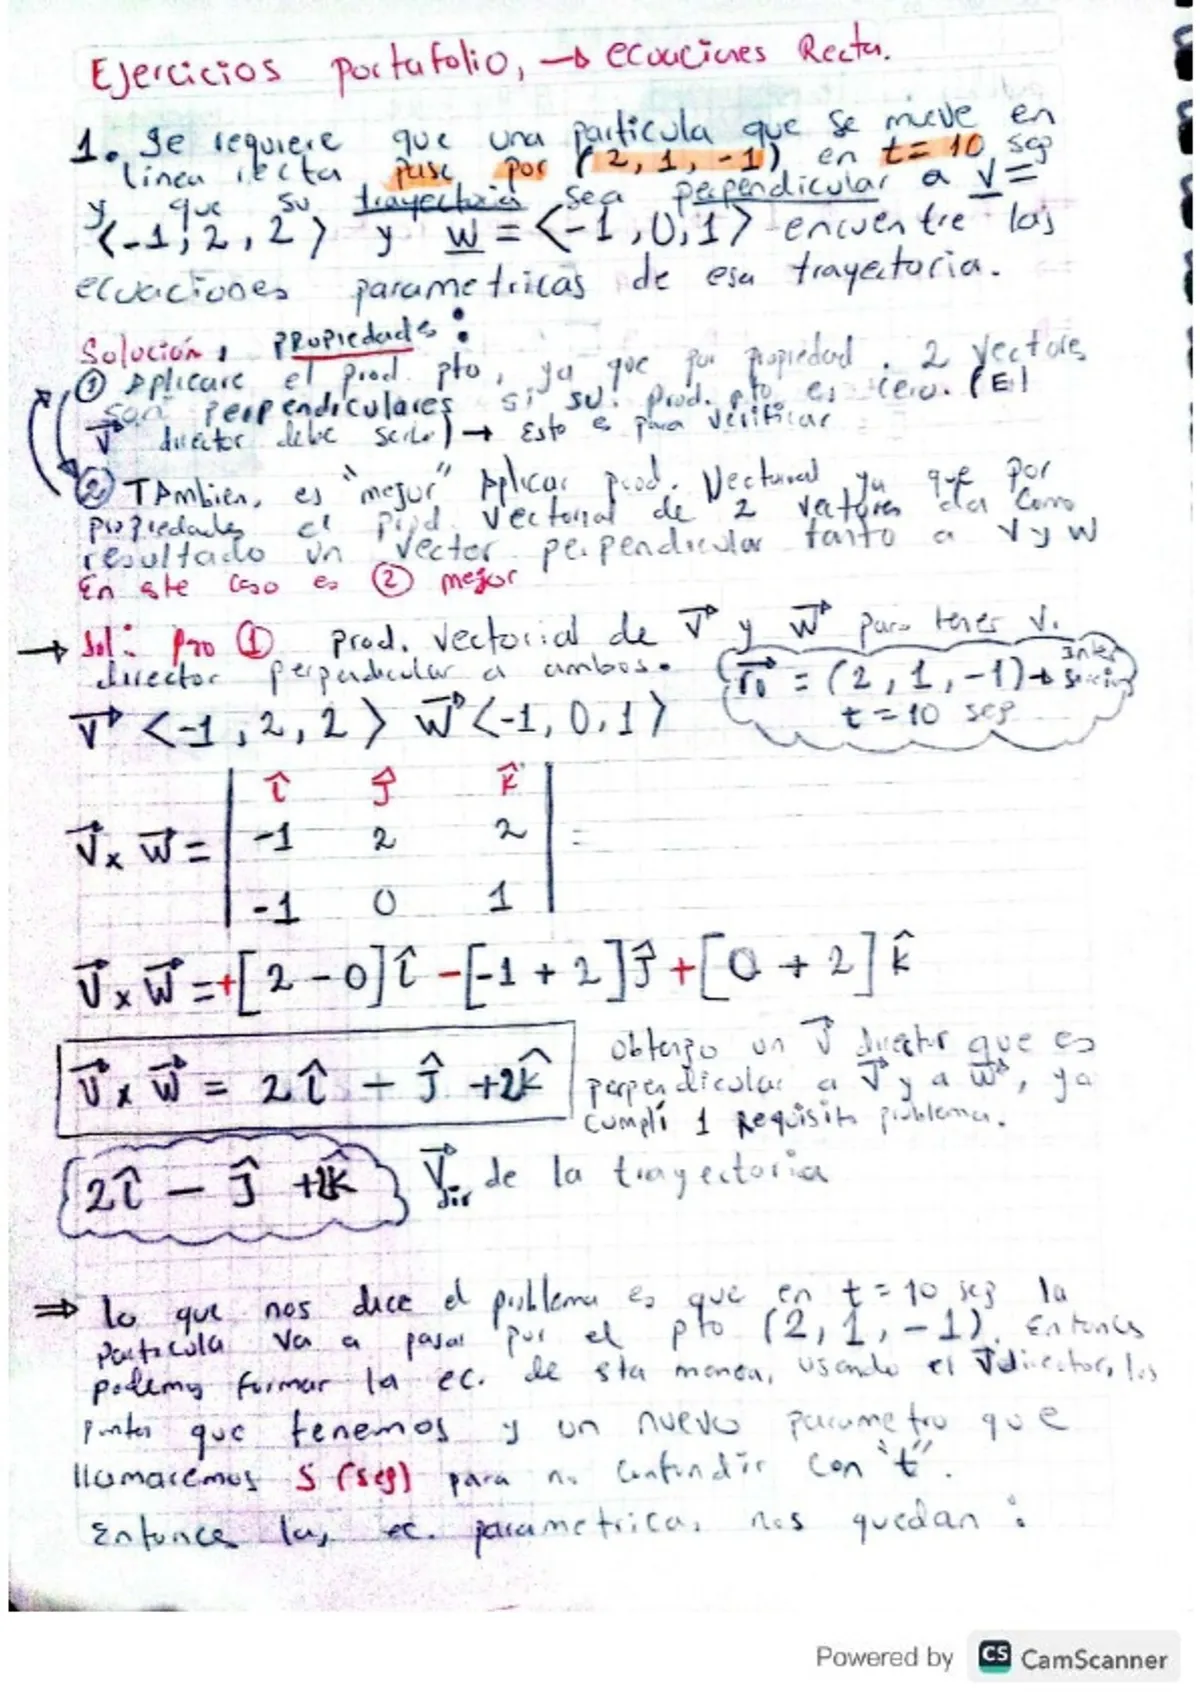 Ejercicios portafolio, → ecuaciones Recta.
1. Se requiere que una particula que se mueve en
linea recta pase por (2, 1, -1) en t = 10 seg
y que su trayectoria sea perpendicular a v =
<-1, 2, 2> y w = <-1, 0, 1> encuentre las
ecuaciones parametricas de esa trayectoria.
Solución, PROPIEDADES:
① Aplicare el prod. pto, ya que por propiedad. 2 vectores
son perpendiculares si su prod. pto es cero. (El
v⃗ director debe serlo) → Esto es para verificar
② TAmbien, es "mejor" Aplicar prod. Vectorial ya que por
propiedades el prod. vectorial de 2 vectores da como
resultado un vector perpendicular tanto a V y W
En este caso es ② mejor
→ Sol: pro ① prod. vectorial de v⃗ y w⃗ para tener v.
director perpendicular a ambos.
r⃗₀ = (2, 1, -1) →
t = 10 seg
v⃗ <-1, 2, 2> w⃗ <-1, 0, 1>
î ĵ k̂
v⃗ x w⃗ = | -1 2 2 | =
-1 0 1
v⃗ x w⃗ = +[2 - 0] î - [-1 + 2] ĵ + [0 + 2] k̂
v⃗ x w⃗ = 2î - ĵ + 2k̂
obtengo un v⃗ director que es
perpendicular a v⃗ y a w⃗, ya
cumplí 1 Requisito problema.
2î - ĵ + 2k̂ V⃗dir de la trayectoria
⇒ lo que nos dice el problema es que en t = 10 seg la
particula va a pasar por el pto (2, 1, -1). Entonces
podemos formar la ec. de sta manera, usando el v⃗ director, los
puntos que tenemos y un nuevo parametro que
llamaremos S (seg) para no confundir con "t".
Entonce las ec. parametricas nos quedan:
Powered by CS CamScanner